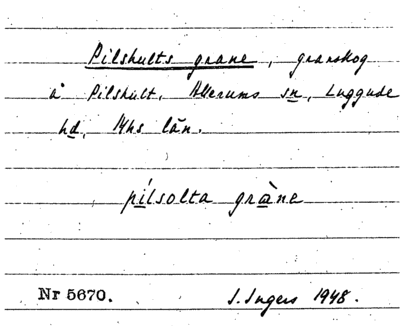 Pilshults grane, granskog
å Pilshult, Allerums sn, Luggude
hd, Mhs län.
pílsolta gràne
Nr 5670. I. Ingers 1948.